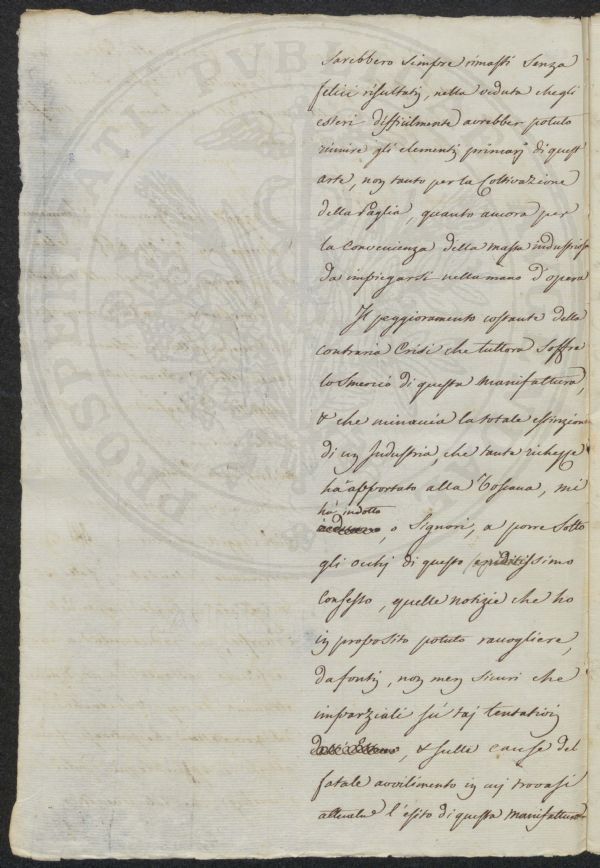 sarebbero sempre rimasti senza
felici risultati, nella veduta che gli
esteri difficilmente avrebber potuto
riunire gli elementi primarj di quest
arte, non tanto per la Coltivazione
della Paglia, quanto ancora per
la Convenienza della massa industriosa
da impiegarsi nella mano d'opera
Il peggioramento costante della
contraria Crisi che tuttora soffre
lo smercio di questa Manifattura,
& che minaccia la totale estinzione
di un Industria, che tante ricchezze
ha apportato alla Toscana, mi
ha indotto
o Signori, a porre sotto
gli occhj di questo eruditissimo
Consesso, quelle notizie che ho
in proposito potuto raccogliere,
da fonti, non men sicuri che
imparziali sù taj tentativi
, & sulle cause del
fatale avvilimento in cuj trovasi
attualme l'esito di questa Manifattura
PROSPERITATI PVBLICAE